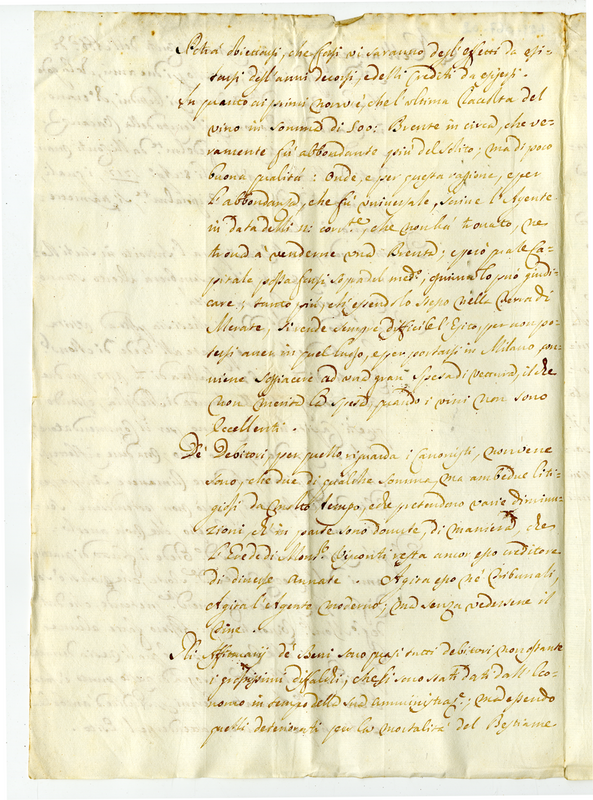 Potrà obiettarsi, che forsi vi saranno degl'effetti da esi-
tarsi degl'anni decorsi, e degli Crediti da esigersi.
In quanto ai primi non v'è, che l'ultima Raccolta del
vino in somma di 500: Brente in circa, che ve-
ramente fu abbondante più del solito; ma di poco
buona qualità: Onde, e per questa ragione, e per
l'abbondanza, che fu universale, scrive l'Agente
in data delli corr.te, che non hà trovato, ne
trova à venderne una Brenta; e però qual Ca-
pitale possa farsi sopra del med.o, ognuno lo può giudi-
care; tanto più, ch'essendo lo stesso nelle terra di
Merate, si rende sempre difficile l'Esito, per non po-
tersi aver in quel luogo, e per portarsi in Milano con-
viene soggiacere ad una gran spesa di vettura, il che
non merita la spesa, quando i vini non sono
Eccellenti.
De' Debitori, per quello riguarda i Canonisti, non ve ne
sono, che due di qualche somma, ma ambedue liti-
giosi da molto tempo, e che pretendono varie diminu-
zioni, ch'in parte sono dovute, di maniera che
l'Erede di Mons.r Visconti resta ancor esso creditore
di diverse annate. Agita esso ne' Tribunali,
Agita l'Agente moderno; ma senza vedersene il
fine.
Gli Affittuarij de' beni sono quasi tutti debitori non ostante
i grossissimi ; che si sono stati dati dall'Eco-
nomo in tempo della sud.a amministraz.e; ma essendo
questi deteriorati per la mortalità del Bestiame